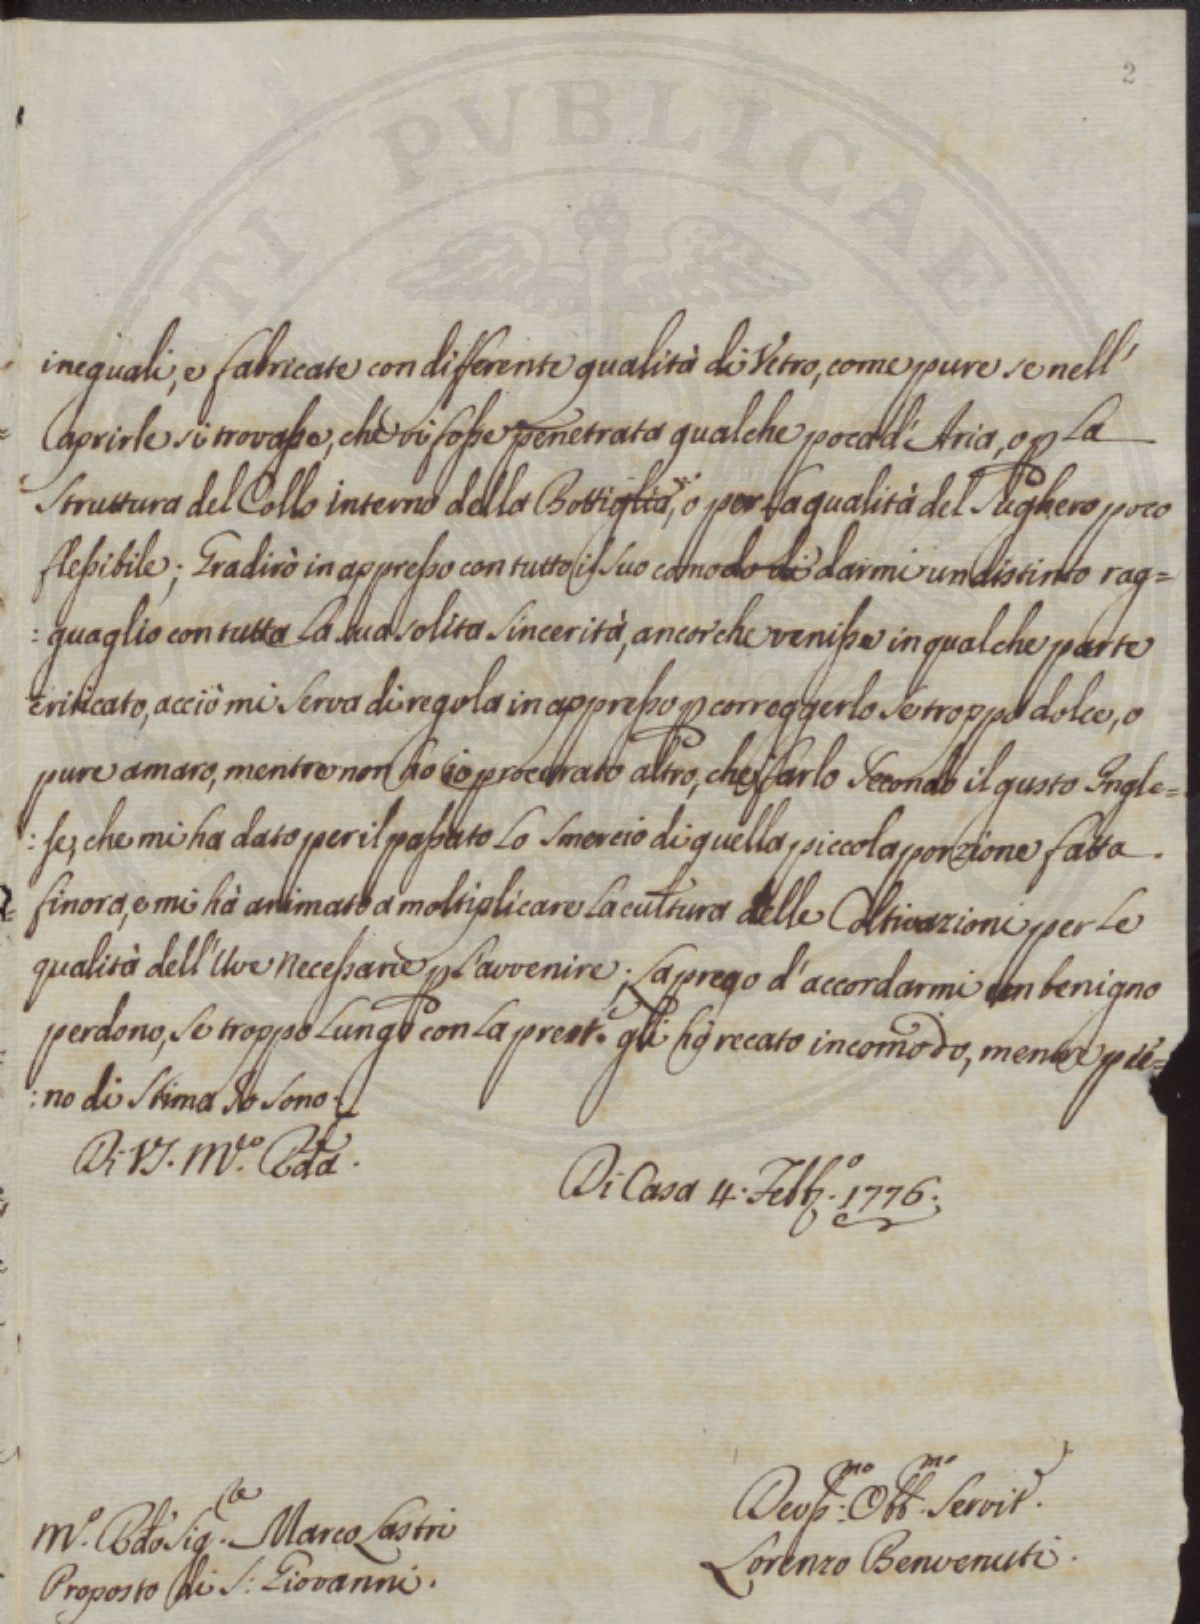 2
TI PVBLICAE
ineguali, e fabricate con differente qualità di Vetro, come pure se nell'
aprirle si trovasse, che vi fosse penetrata qualche poca d'Aria, o p la
Struttura del Collo interno della Bottiglia, o per la qualità del Sughero poco
flessibile; Gradirò in appresso con tutto il suo comodo di darmi un distinto rag=
:guaglio con tutta la sua solita Sincerità, ancorche venisse in qualche parte
criticato, acciò mi serva di regola in appresso p correggerlo se troppo dolce, o
pure amaro, mentre non ho io procurato altro, che farlo Secondo il gusto Ingle=
:se, che mi ha dato per il passato lo Smercio di quella piccola porzione fatta
finora, e mi hà animato a moltiplicare la cultura delle Coltivazioni per le
qualità dell'Uve necessarie p l'avvenire; La prego d'accordarmi un benigno
perdono, se troppo lungo con la preste. gli hò recato incomodo, mentre pie=
:no di Stima Io sono
Di VS. Mto. Rda.
Di Casa 4. Febbo. 1776.
Mo. Rdo Sigre. Marco Lastri
Proposto di S: Giovanni.
Devmo. Obbmo. Servitr.
Lorenzo Benvenuti.